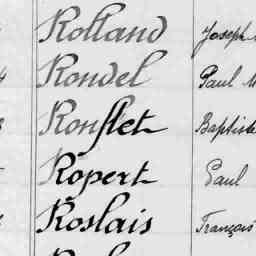 Rolland Joseph
Rondel Paul
Ronflet Baptiste
Ropert Paul
Roslais François